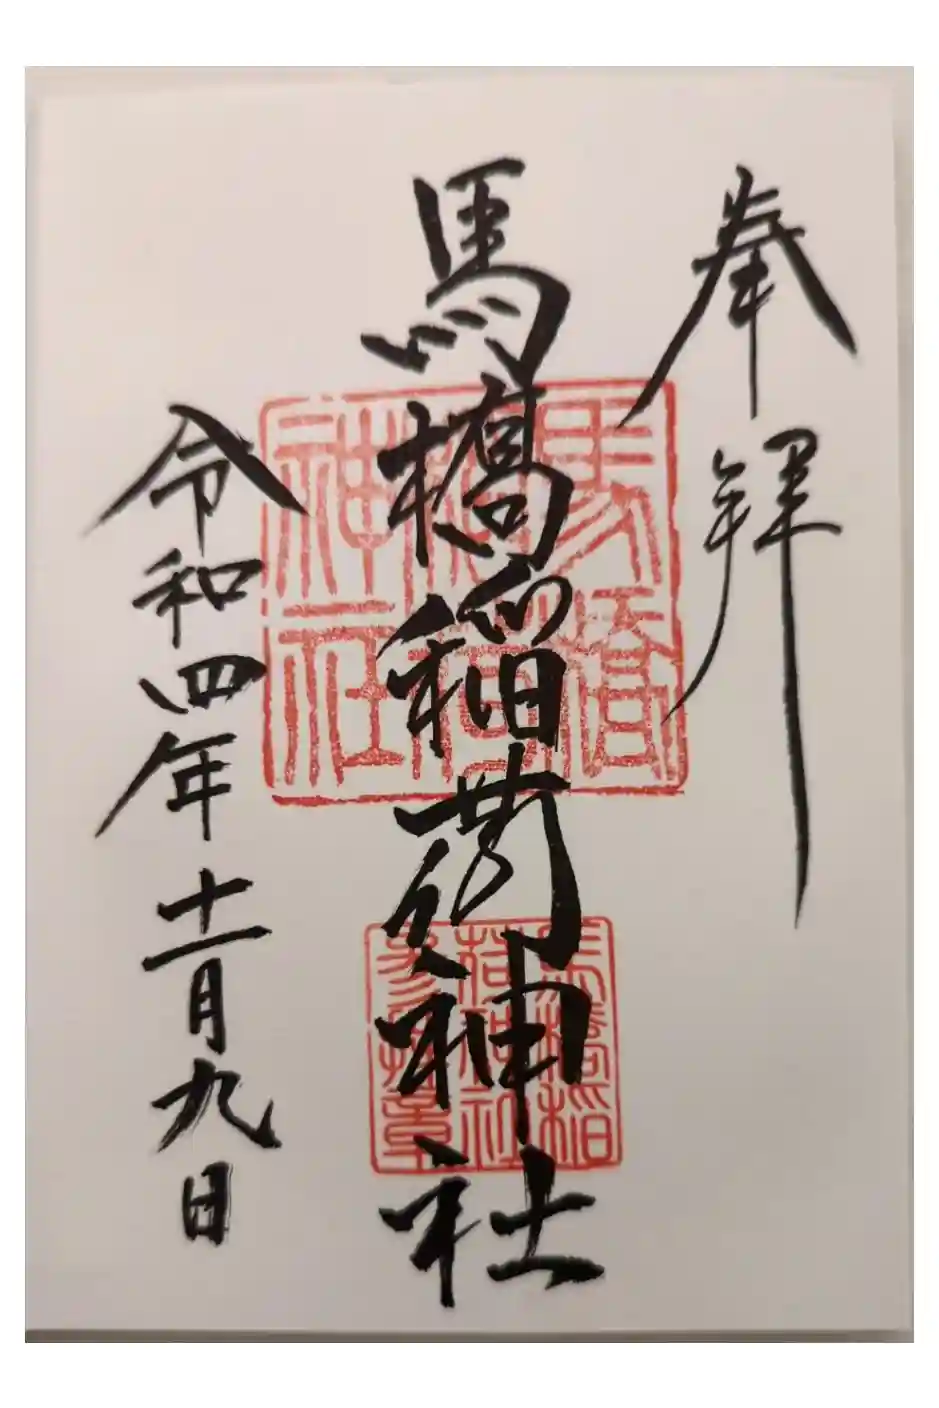 奉拝
馬橋稲荷神社
令和四年十一月九日
馬橋
稲荷
神社
馬橋稲
荷神社
参拝章